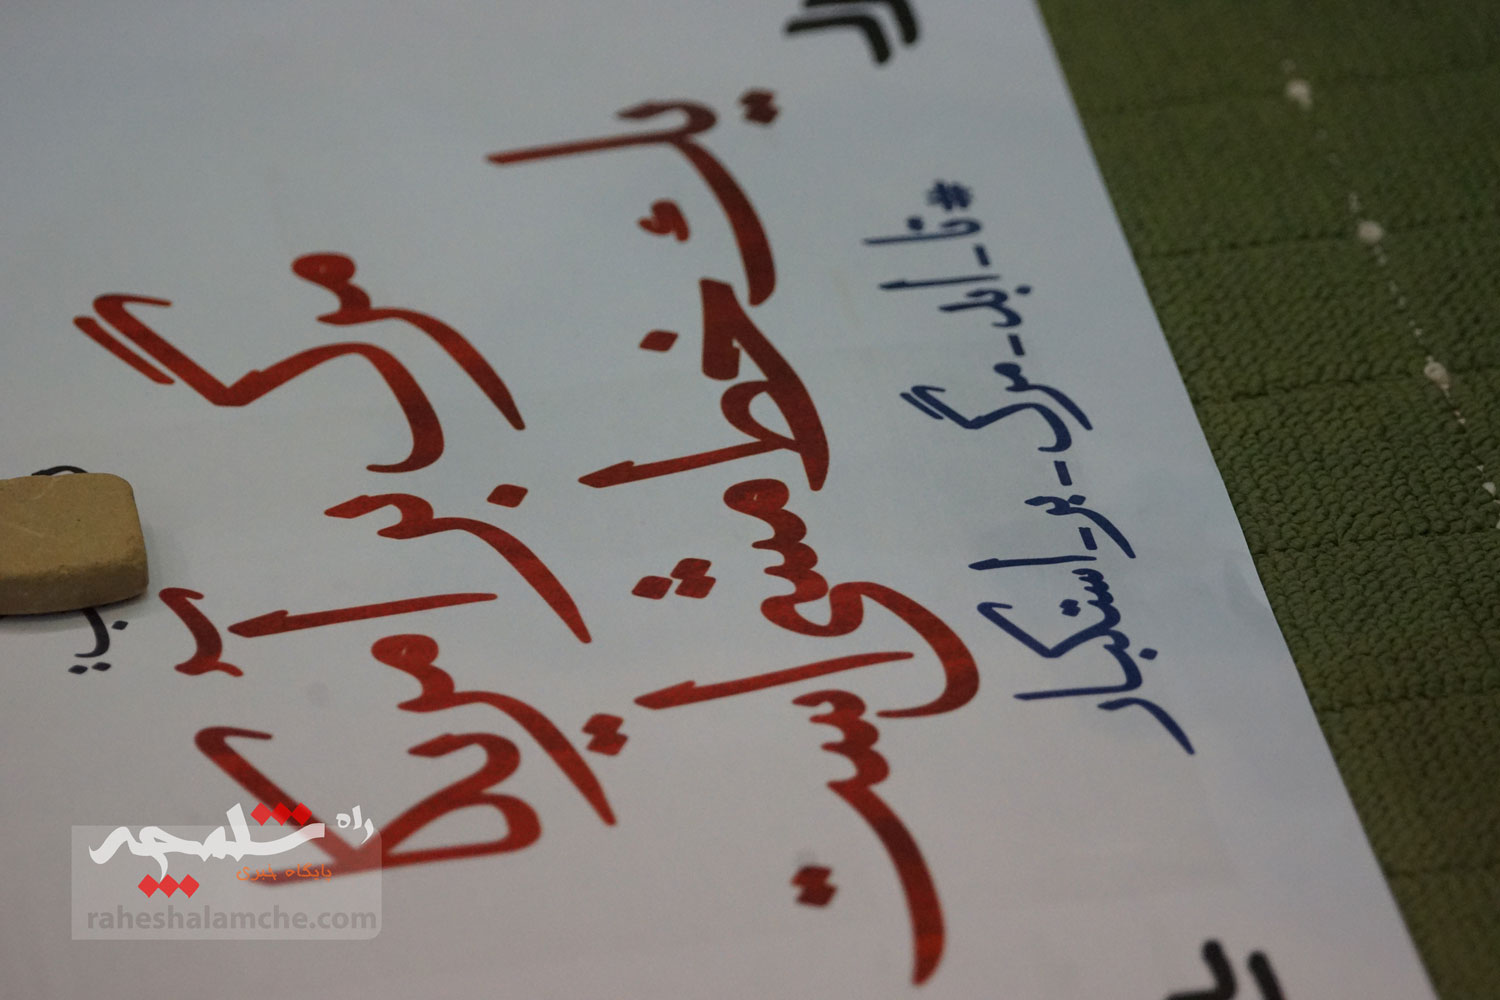 مرگ بر آمریکا
یک خط مشی است
#تا_ابد_مرگ_بر_استکبار
راه شلمچه
پایگاه خبری
raheshalamche.com